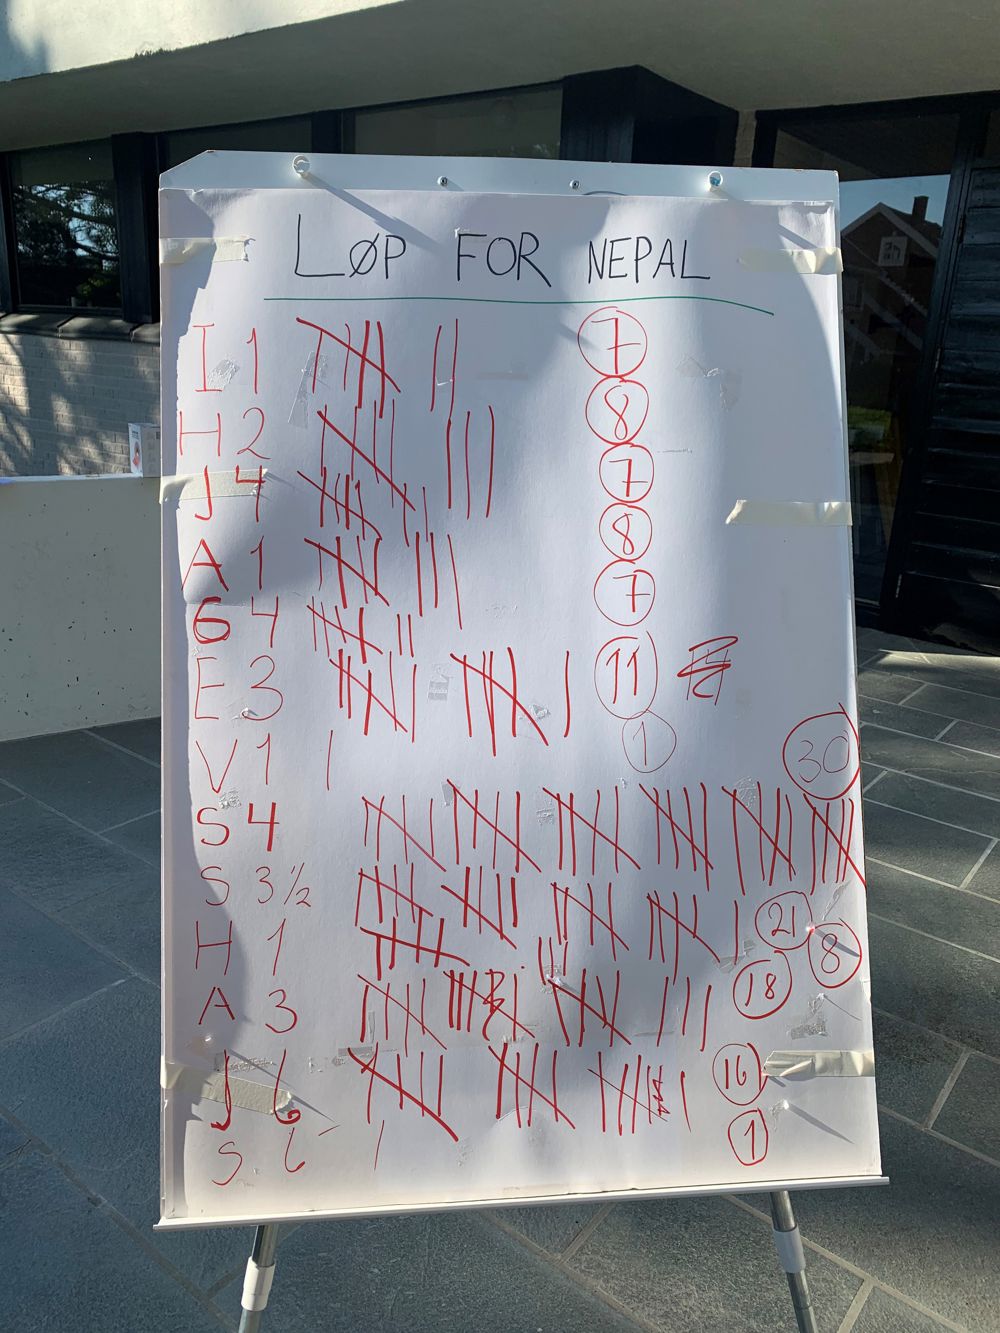 LØP FOR NEPAL
I 1 7
H 2 8
J 4 7
A 1 8
G 4 7
E 3 11
V 1 1
S 4 30
S 3 ½ 21
H 1 8
A 3 18
J 6 16
S 6 1